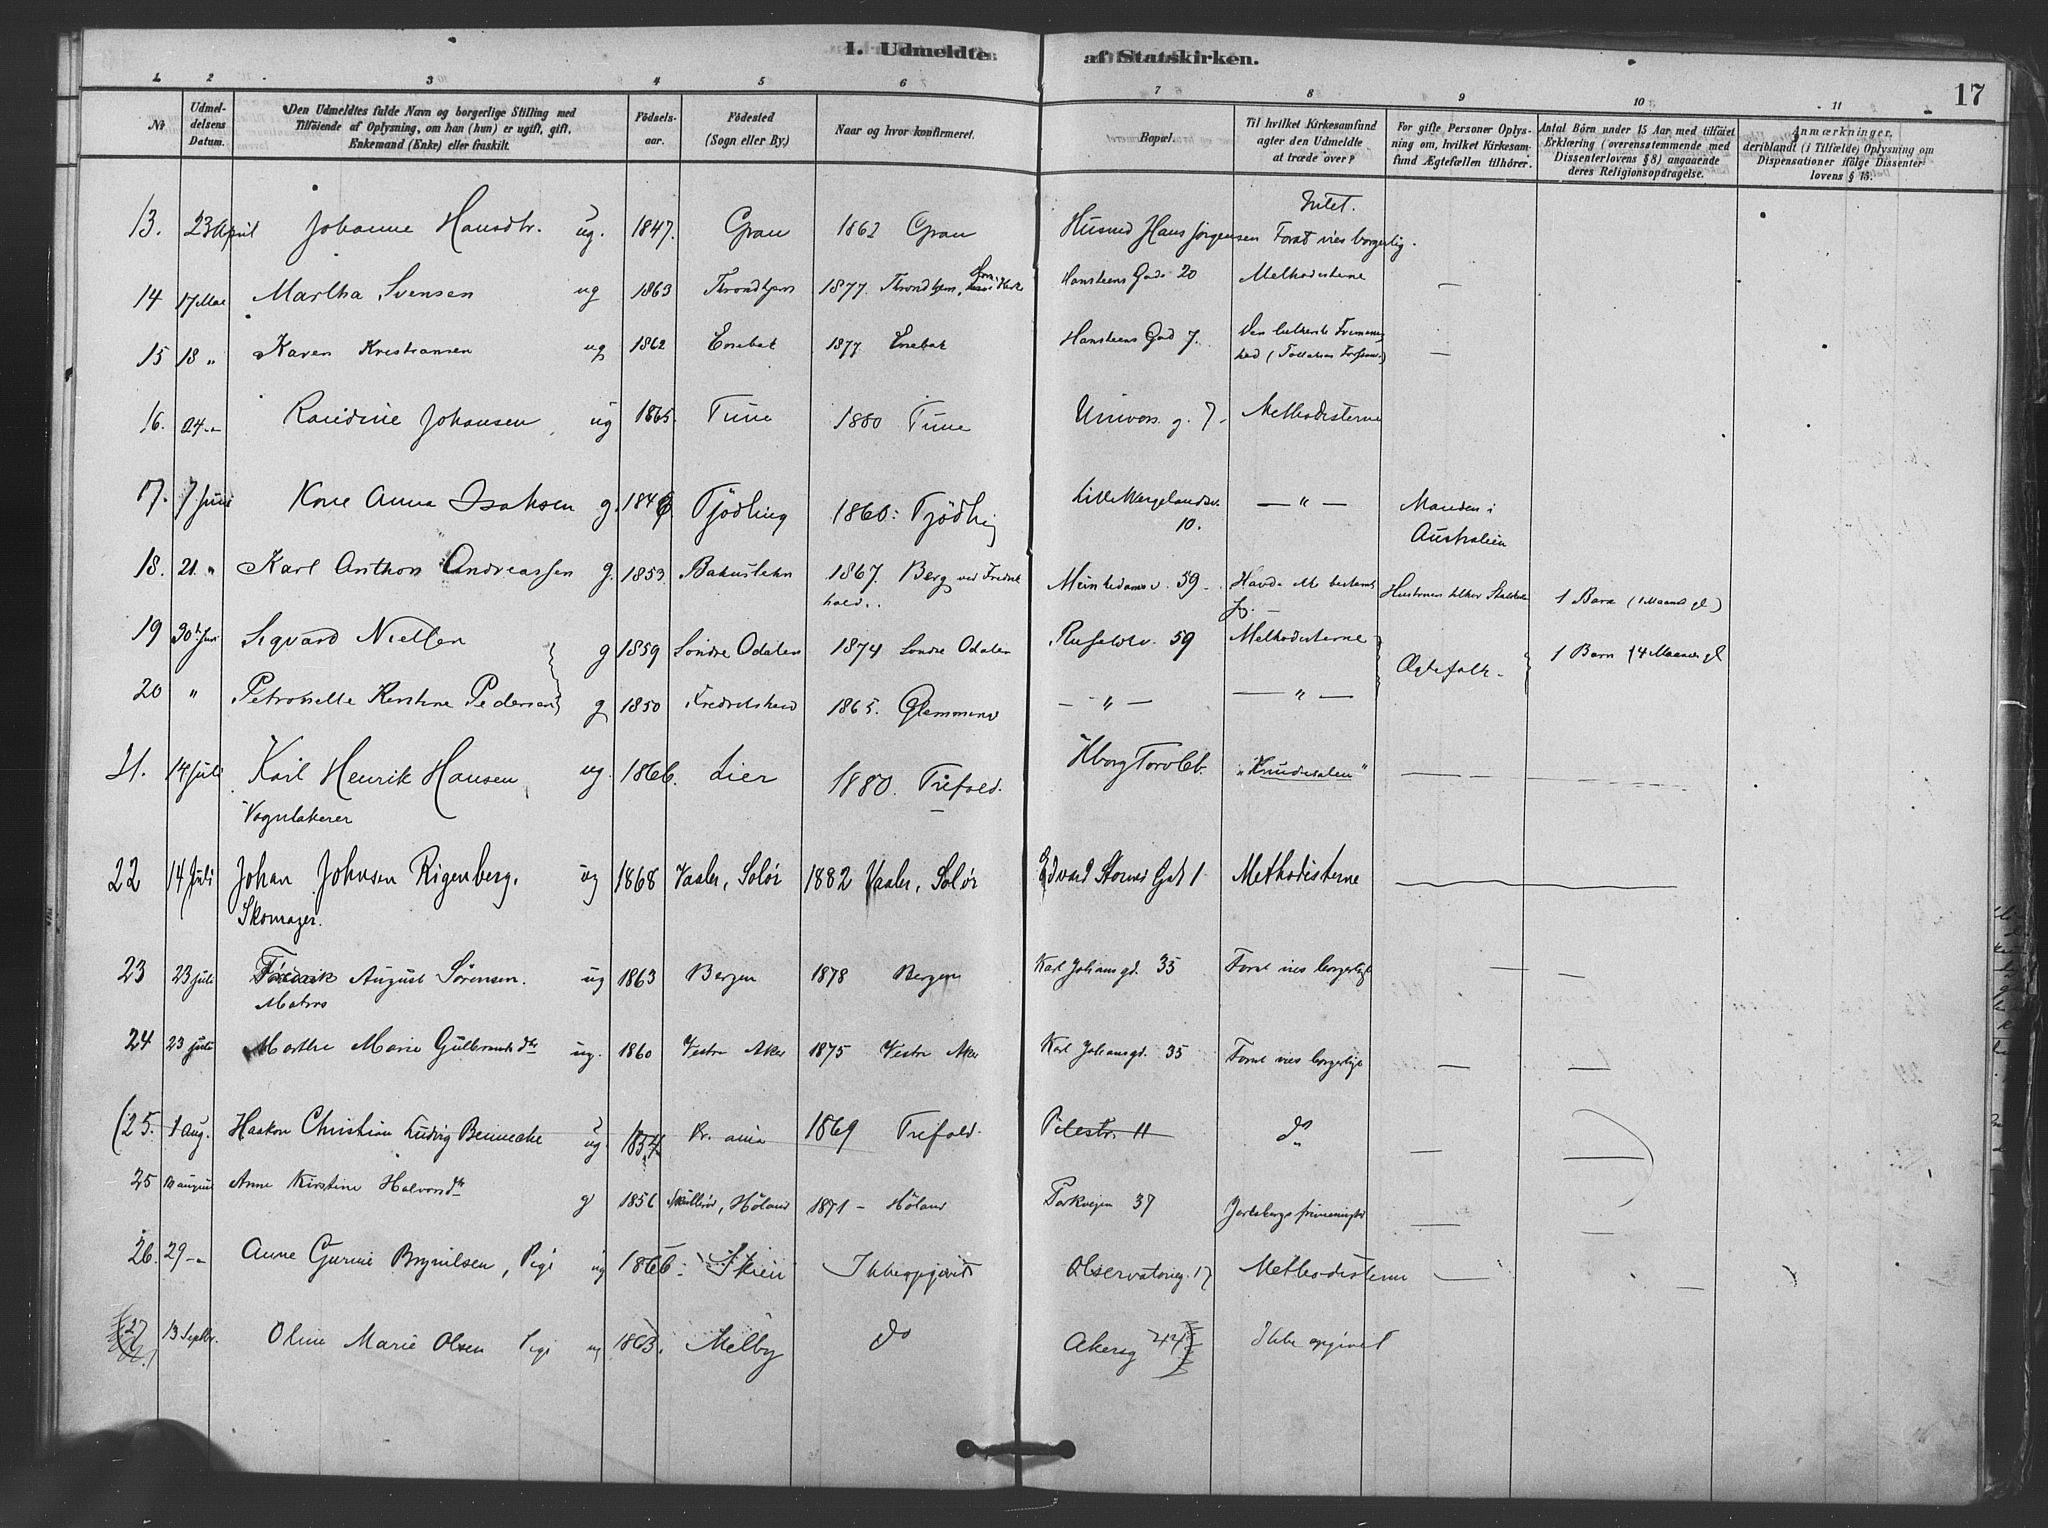 I. Udmeldte af Statskirken.
17
1 2 3 4 5 6 7 8 9 10 11
No
Udmeldelsens Datum.
Den Udmeldtes fulde Navn og borgerlige Stilling med Tilføiende af Oplysning, om han (hun) er ugift, gift, Enkemand (Enke) eller fraskilt.
Fødselsaar.
Fødested (Sogn eller By.)
Naar og hvor konfirmeret.
Bopæl.
Til hvilket Kirkesamfund agter den Udmeldte at træde over?
For gifte Personer Oplysning om, hvilket Kirkesamfund Ægtefællen tilhører.
Antal Børn under 15 Aar med tilføiet Erklæring (overensstemmende med Dissenterlovens § 8) angaaende deres Religionsopdragelse.
Anmærkninger, deriblandt (i Tilfælde) Oplysning om Dispensationer ifølge Dissenterlovens § 15.
13. 23 April Johanne Hansdtr. ug. 1847. Gran 1862 Gran Husmd Hans Jørgensen Intet. Forat vies borgerlig. —
14 17 Mai Martha Svensen ug 1863 Throndhjem 1877. Throndhjem, Hansteens Gade 20 Methodisterne —
15 18 " Karen Kristiansen ug 1862 Enebak 1877 Enebak Hansteens Gad 7. Den lutherske Frimenighed —
16. 24 -"- Randine Johansen ug 1865. Tune 1880 Tune Univers. g. 7 - Methodisterne
17. 7 Juni Kone Anna Isaksen g. 1846 Tjødling 1860: Tjødling Lille Wergelandsv. 10. — " — Manden i Australien
18. 21. " Karl Anthon Andreassen g. 1853. 1867. Berg ved Fredrikhald.. Munkedamsv. 59 - 1 Barn (1 Maaned gl)
19 30te Juni Sigvard Nielsen g 1859 Søndre Odalen 1874 Søndre Odalen 59 Methodisterne Ægtefolk - 1 Barn (4 Maaneder gl
20 " Petronelle Kirstine Pedersen g 1850 Fredrikshald 1865. Glemminge — " — — " —
21. 14 Juli Karl Henrik Hansen, ug. 1866. Lier 1880. Trefold. "Knudesalen" —
Vognlakerer
22 14 Juli Johan Johnsen Rigenberg. ug 1868 Vaaler, Solør 1882 Vaaler, Solør Edvard Storms Gad 1 Methodisterne
Skomager.
23 23 juli Fredrik August Sørensen. ug 1863 Bergen 1878 Bergen Karl Johansgd. 35 Forat vies borgerligt — —
Matros
24 23 juli Marthe Marie Gulbrandsdtr ug. 1860 Vestre Aker 1875 Vestre Aker Karl Johansgd. 35 Forat vies borgerligt — —
(25. 1 Aug. Haakon Christian Ludvig Bennecke ug. 1854 Kr. ania 1869 Trefold. Pilestr. 11 do — —
25 august Anne Kirstine Halvorsdtr g 1856 Skullerud, Høland 1871 - Høland Parkveien 37 Jarlsbergs frimenighed —
26. 29 -"- Anne Gurine Brynilsen, Pige ug 1866. Skien Ikke opgivet Observatorieg. 17 Methodisterne — —
(27 13 Septbr. Oline Marie Olsen Pige ug 1863. Melby do Akersg 44 Ikke opgivet